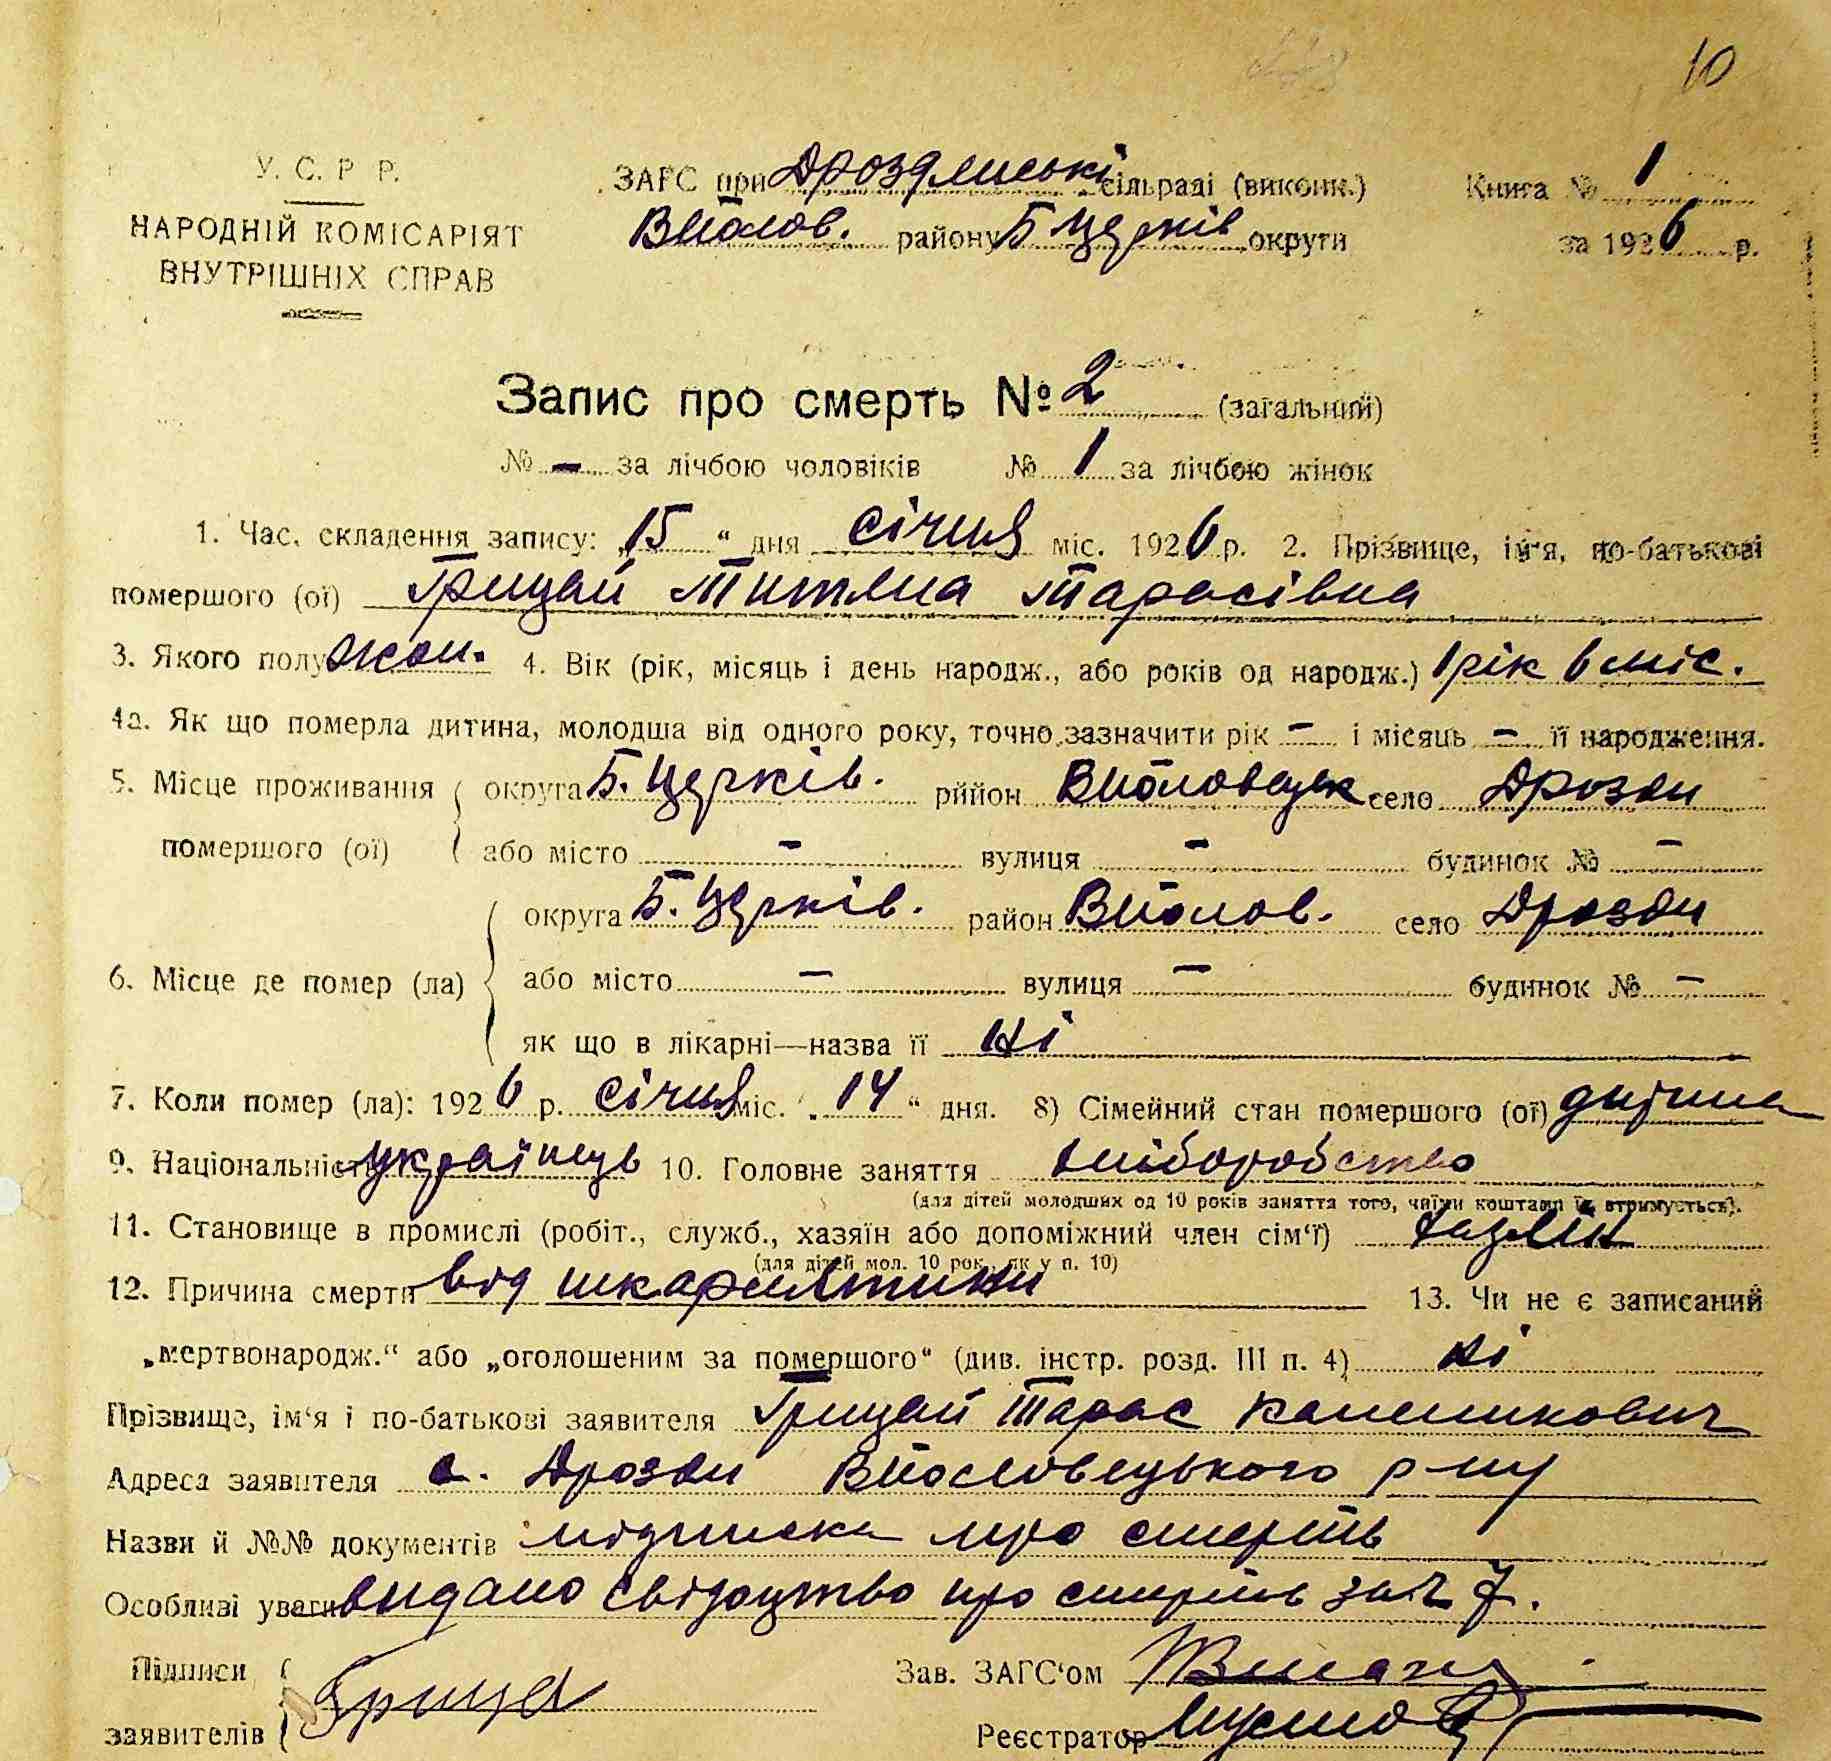 10
У. С. Р Р.
НАРОДНІЙ КОМІСАРІЯТ
ВНУТРІШНІХ СПРАВ
ЗАГС при Дроздянські сільраді (виконк.) Книга № 1
Вполов. району Б Церків округи за 1926 р.
Запис про смерть № 2 (загальний)
№ – за лічбою чоловіків № 1 за лічбою жінок
1. Час. складення запису: „15“ дня січня міс. 1926 р. 2. Прізвище, ім'я, по-батькові
помершого (ої) Грицай Титяна Тарасівна
3. Якого полу жон. 4. Вік (рік, місяць і день народж., або років од народж.) 1 рік 6 міс.
4а. Як що померла дитина, молодша від одного року, точно зазначити рік – і місяць – її народження.
5. Місце проживання округа Б. Церків. рййон село Дрозди
помершого (ої) або місто – вулиця – будинок № –
округа Б. Церків. район село Дрозди
6. Місце де помер (ла) або місто – вулиця – будинок № –
як що в лікарні—назва її ні
7. Коли помер (ла): 1926 р. січня міс. „14“ дня. 8) Сімейний стан помершого (ої) дитина
9. Національність українець 10. Головне заняття хліборобство
(для дітей молодших од 10 років заняття того, чиїми коштами їх втримується).
11. Становище в промислі (робіт., служб., хазяїн або допоміжний член сім'ї) хазяїн
(для дітей мол. 10 рок., як у п. 10)
12. Причина смерти від шкарлятини 13. Чи не є записаний
„мертвонародж.“ або „оголошеним за помершого“ (див. інстр. розд. III п. 4) ні
Прізвище, ім'я і по-батькові заявителя Грицай Тарас
Адреса заявителя с. Дрозди р-ну
Назви й №№ документів підписка про смерть
Особливі уваги видано свідоцтво про смерть за № 7.
Підписи Грицай Зав. ЗАГС'ом
заявителів Реєстратор